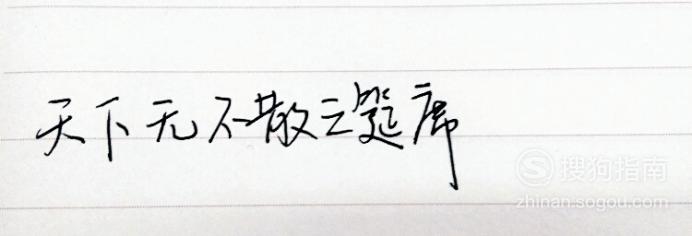 天下无不散之筵席
S 搜狗指南
zhinan.sogou.com